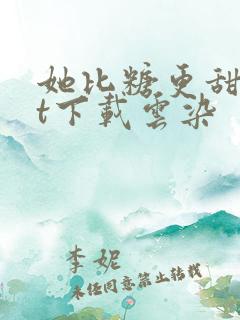 她比糖更甜
t下载云染
李妮
未经同意禁止转载